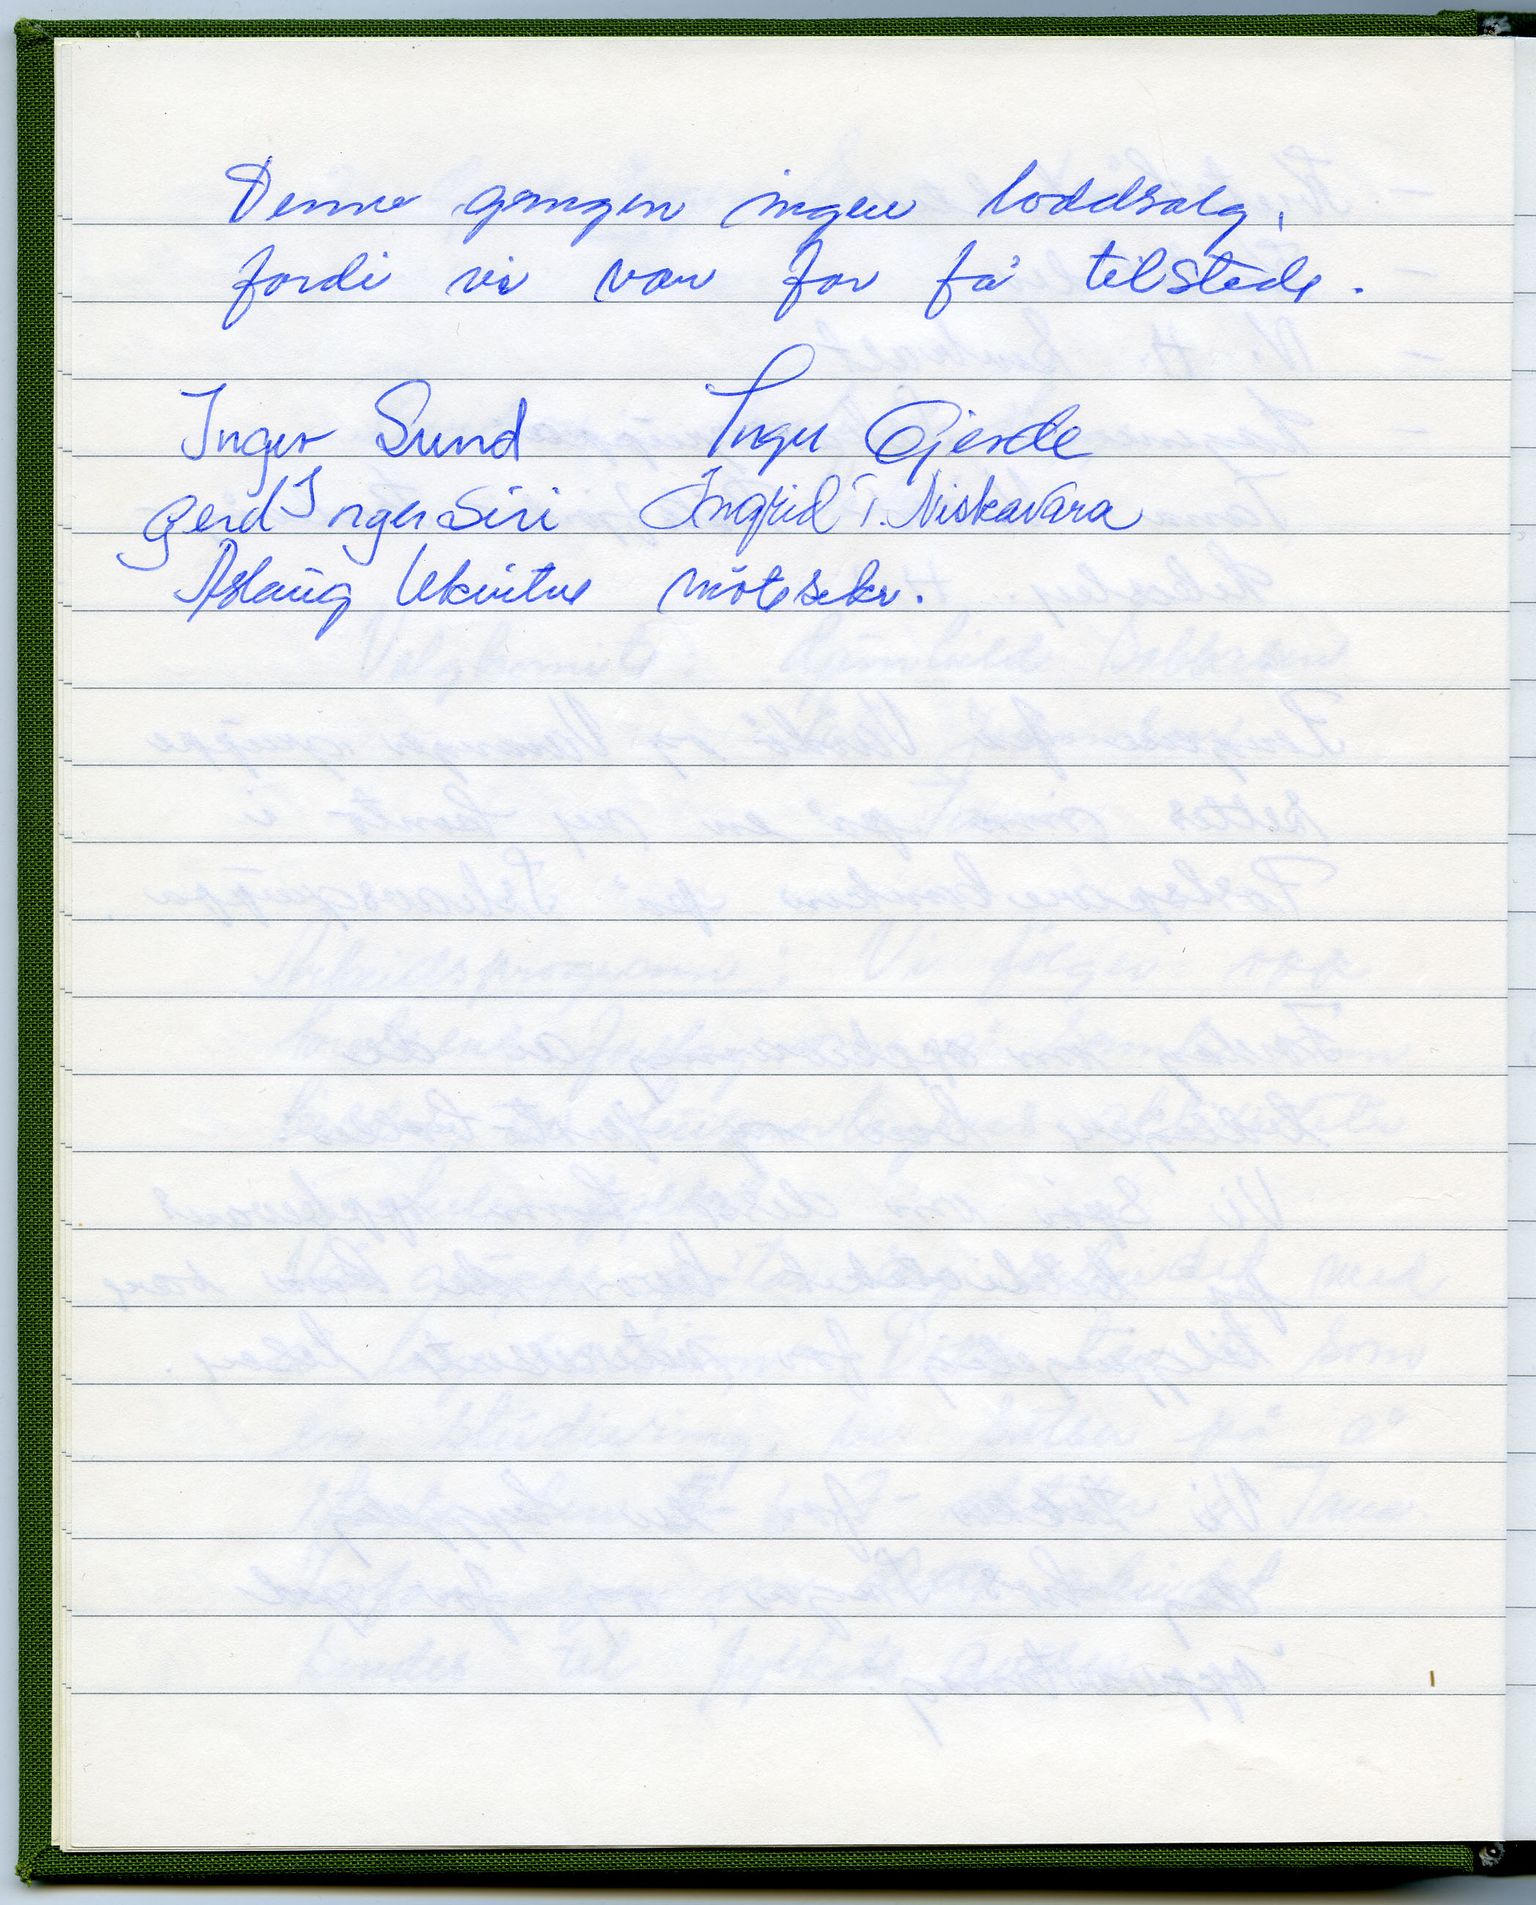 Denne gangen ingen loddsalg,
fordi vi var for få tilstede.
Inger Sund Inger Gjerde
Gerd Inger Siri Ingrid T. Niskavara
Aslaug møtesekr.